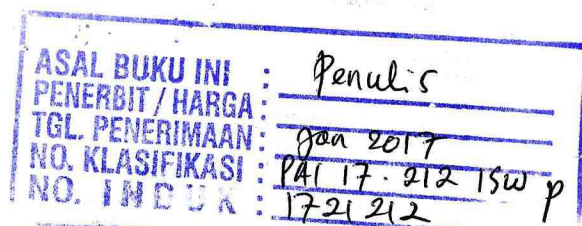 ASAL BUKU INI : Penulis
PENERBIT / HARGA :
TGL. PENERIMAAN : Jan 2017
NO. KLASIFIKASI : PAI 17. 212 ISW p
NO. INDUK : 1721212